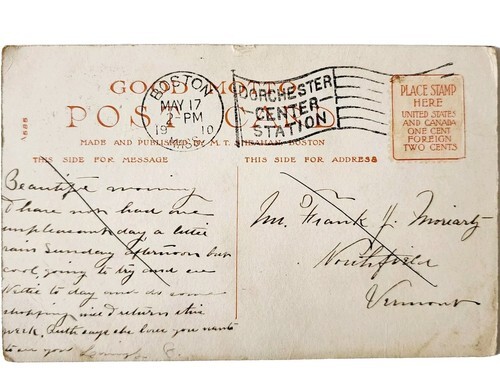 GOOD MOTTO
POST CARD
MADE AND PUBLISHED BY M. T. SHEAHAN, BOSTON
BOSTON
MAY 17
2-PM
19 10
MASS.
DORCHESTER
CENTER
STATION
PLACE STAMP
HERE
UNITED STATES
AND CANADA
ONE CENT
FOREIGN
TWO CENTS
THIS SIDE FOR MESSAGE
THIS SIDE FOR ADDRESS
Beautiful morning
I have not had one
unpleasant day a little
rain Sunday afternoon but
cool, going to try and see
Nettie to day and do some
shopping will return this
week. Ruth says she loves you wants
to see you
Mr. Frank J. Moriarty
Northfield
Vermont